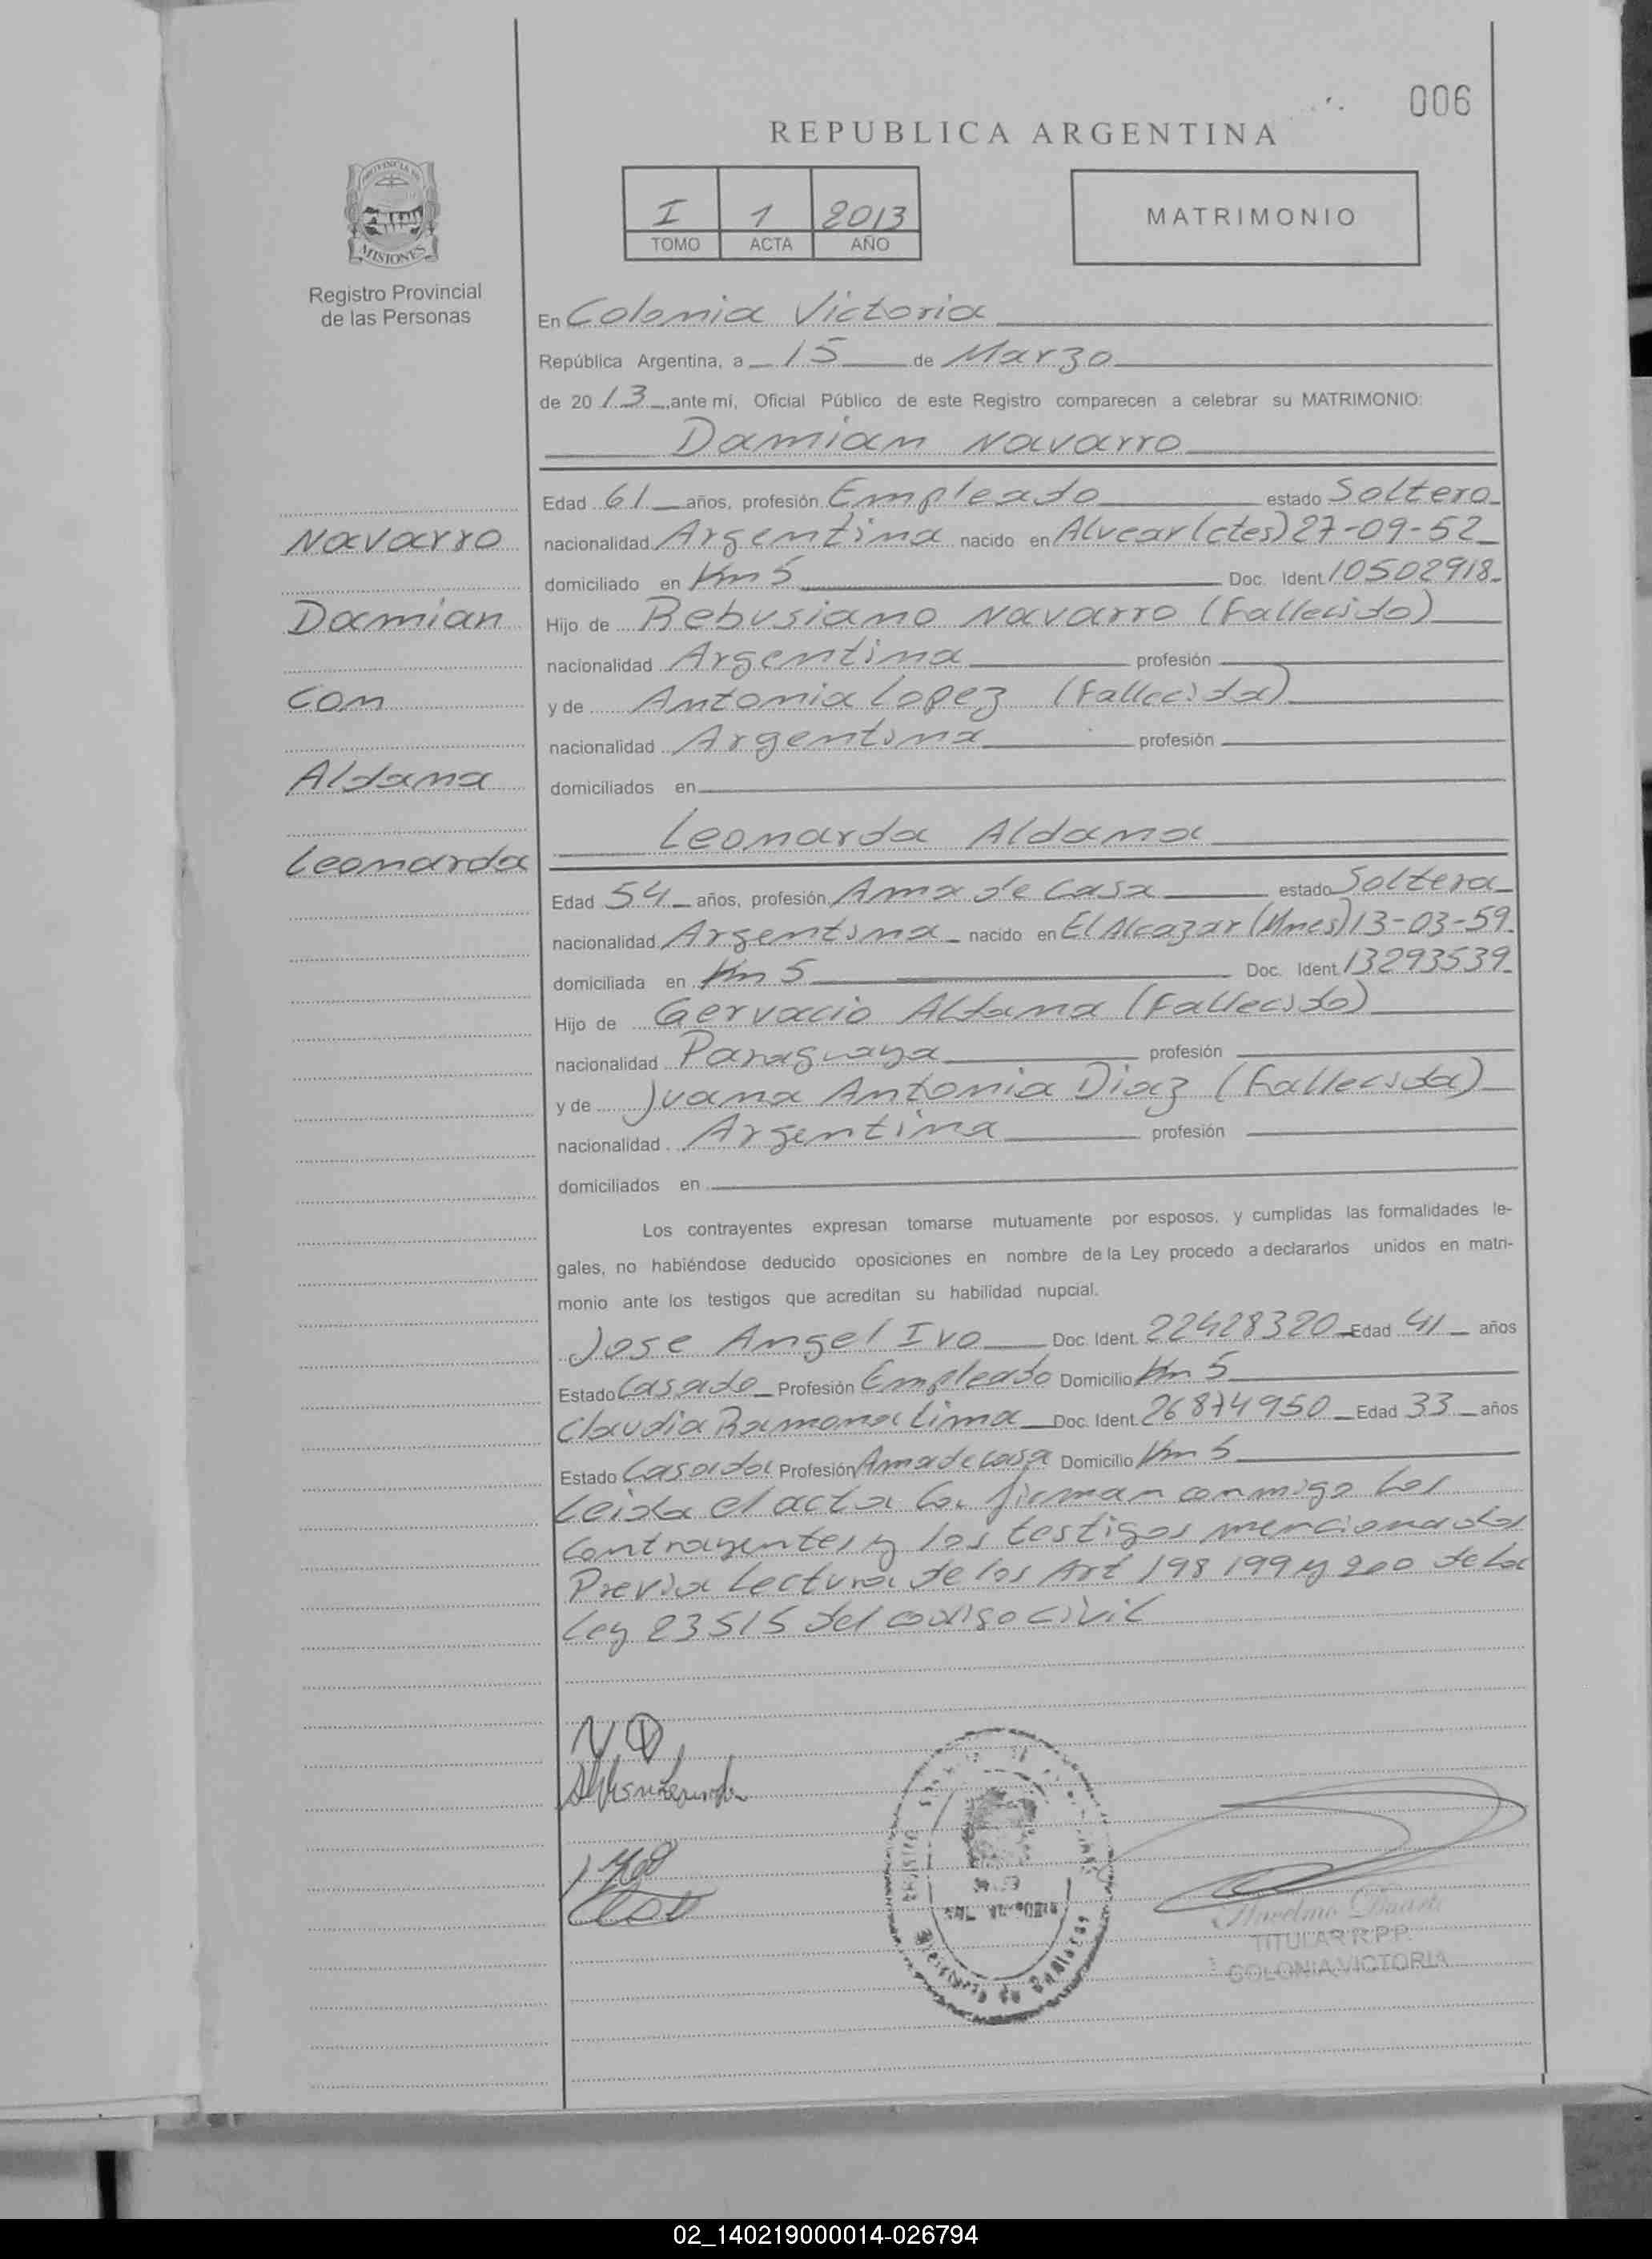 006
REPUBLICA ARGENTINA
I 1 2013
TOMO ACTA AÑO
MATRIMONIO
PROVINCIA DE
MISIONES
Registro Provincial
de las Personas
En Colonia Victoria
República Argentina, a 15 de Marzo
de 20 13 ante mí, Oficial Público de este Registro comparecen a celebrar su MATRIMONIO:
Damian Navarro
Edad 61 años, profesión Empleado estado Soltero
Navarro
nacionalidad Argentina nacido en Alvear (ctes) 27-09-52
domiciliado en Km 5 Doc. Ident. 10502918
Damian
Hijo de Rebusiano Navarro (Fallecido)
nacionalidad Argentina profesión
Con
y de Antonia Lopez (Fallecida)
nacionalidad Argentina profesión
Aldana
domiciliados en
Leonarda Aldana
Leonarda
Edad 54 años, profesión Ama de Casa estado Soltera
nacionalidad Argentina nacido en El Alcazar (Mnes) 13-03-59
domiciliada en Km 5 Doc. Ident. 13293539
Hijo de Gervacio Aldana (Fallecido)
nacionalidad Paraguaya profesión
y de Juana Antonia Diaz (Fallecida)
nacionalidad Argentina profesión
domiciliados en
Los contrayentes expresan tomarse mutuamente por esposos, y cumplidas las formalidades le-
gales, no habiéndose deducido oposiciones en nombre de la Ley procedo a declararlos unidos en matri-
monio ante los testigos que acreditan su habilidad nupcial.
Jose Angel Ivo Doc. Ident. 22428320 Edad 41 años
Estado Casado Profesión Empleado Domicilio Km 5
Claudia Ramona Lima Doc. Ident. 26874950 Edad 33 años
Estado Casada Profesión Ama de casa Domicilio Km 5
Leida el acta la firman conmigo los
Contrayentes y los testigos mencionados
Previa Lectura de los Art 198 199 y 200 de la
Ley 23515 del codigo civil
N D
TITULAR R.P.P.
COLONIA VICTORIA
02_140219000014-026794